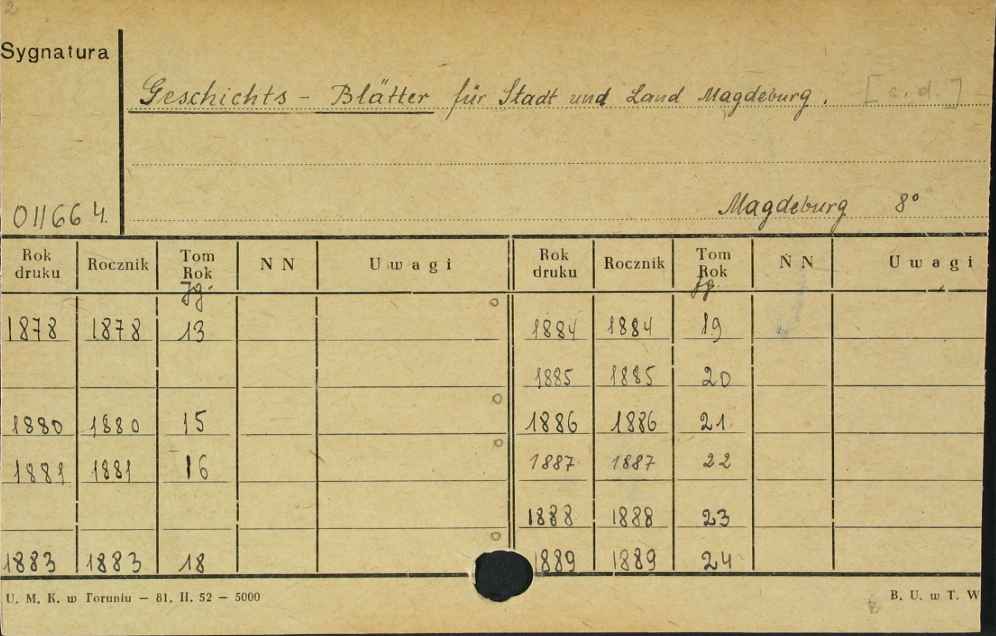 2
Sygnatura
Geschichts - Blätter für Stadt und Land Magdeburg. [c.d.]
011664.
Magdeburg 8°
Rok druku Rocznik Tom Rok NN Uwagi Rok druku Rocznik Tom Rok NN Uwagi
Jg. Jg.
1878 1878 13 1884 1884 19
1885 1885 20
1880 1880 15 1886 1886 21
1881 1881 16 1887 1887 22
1888 1888 23
1883 1883 18 1889 1889 24
U. M. K. w Toruniu — 81. II. 52 — 5000 B. U. w T. W